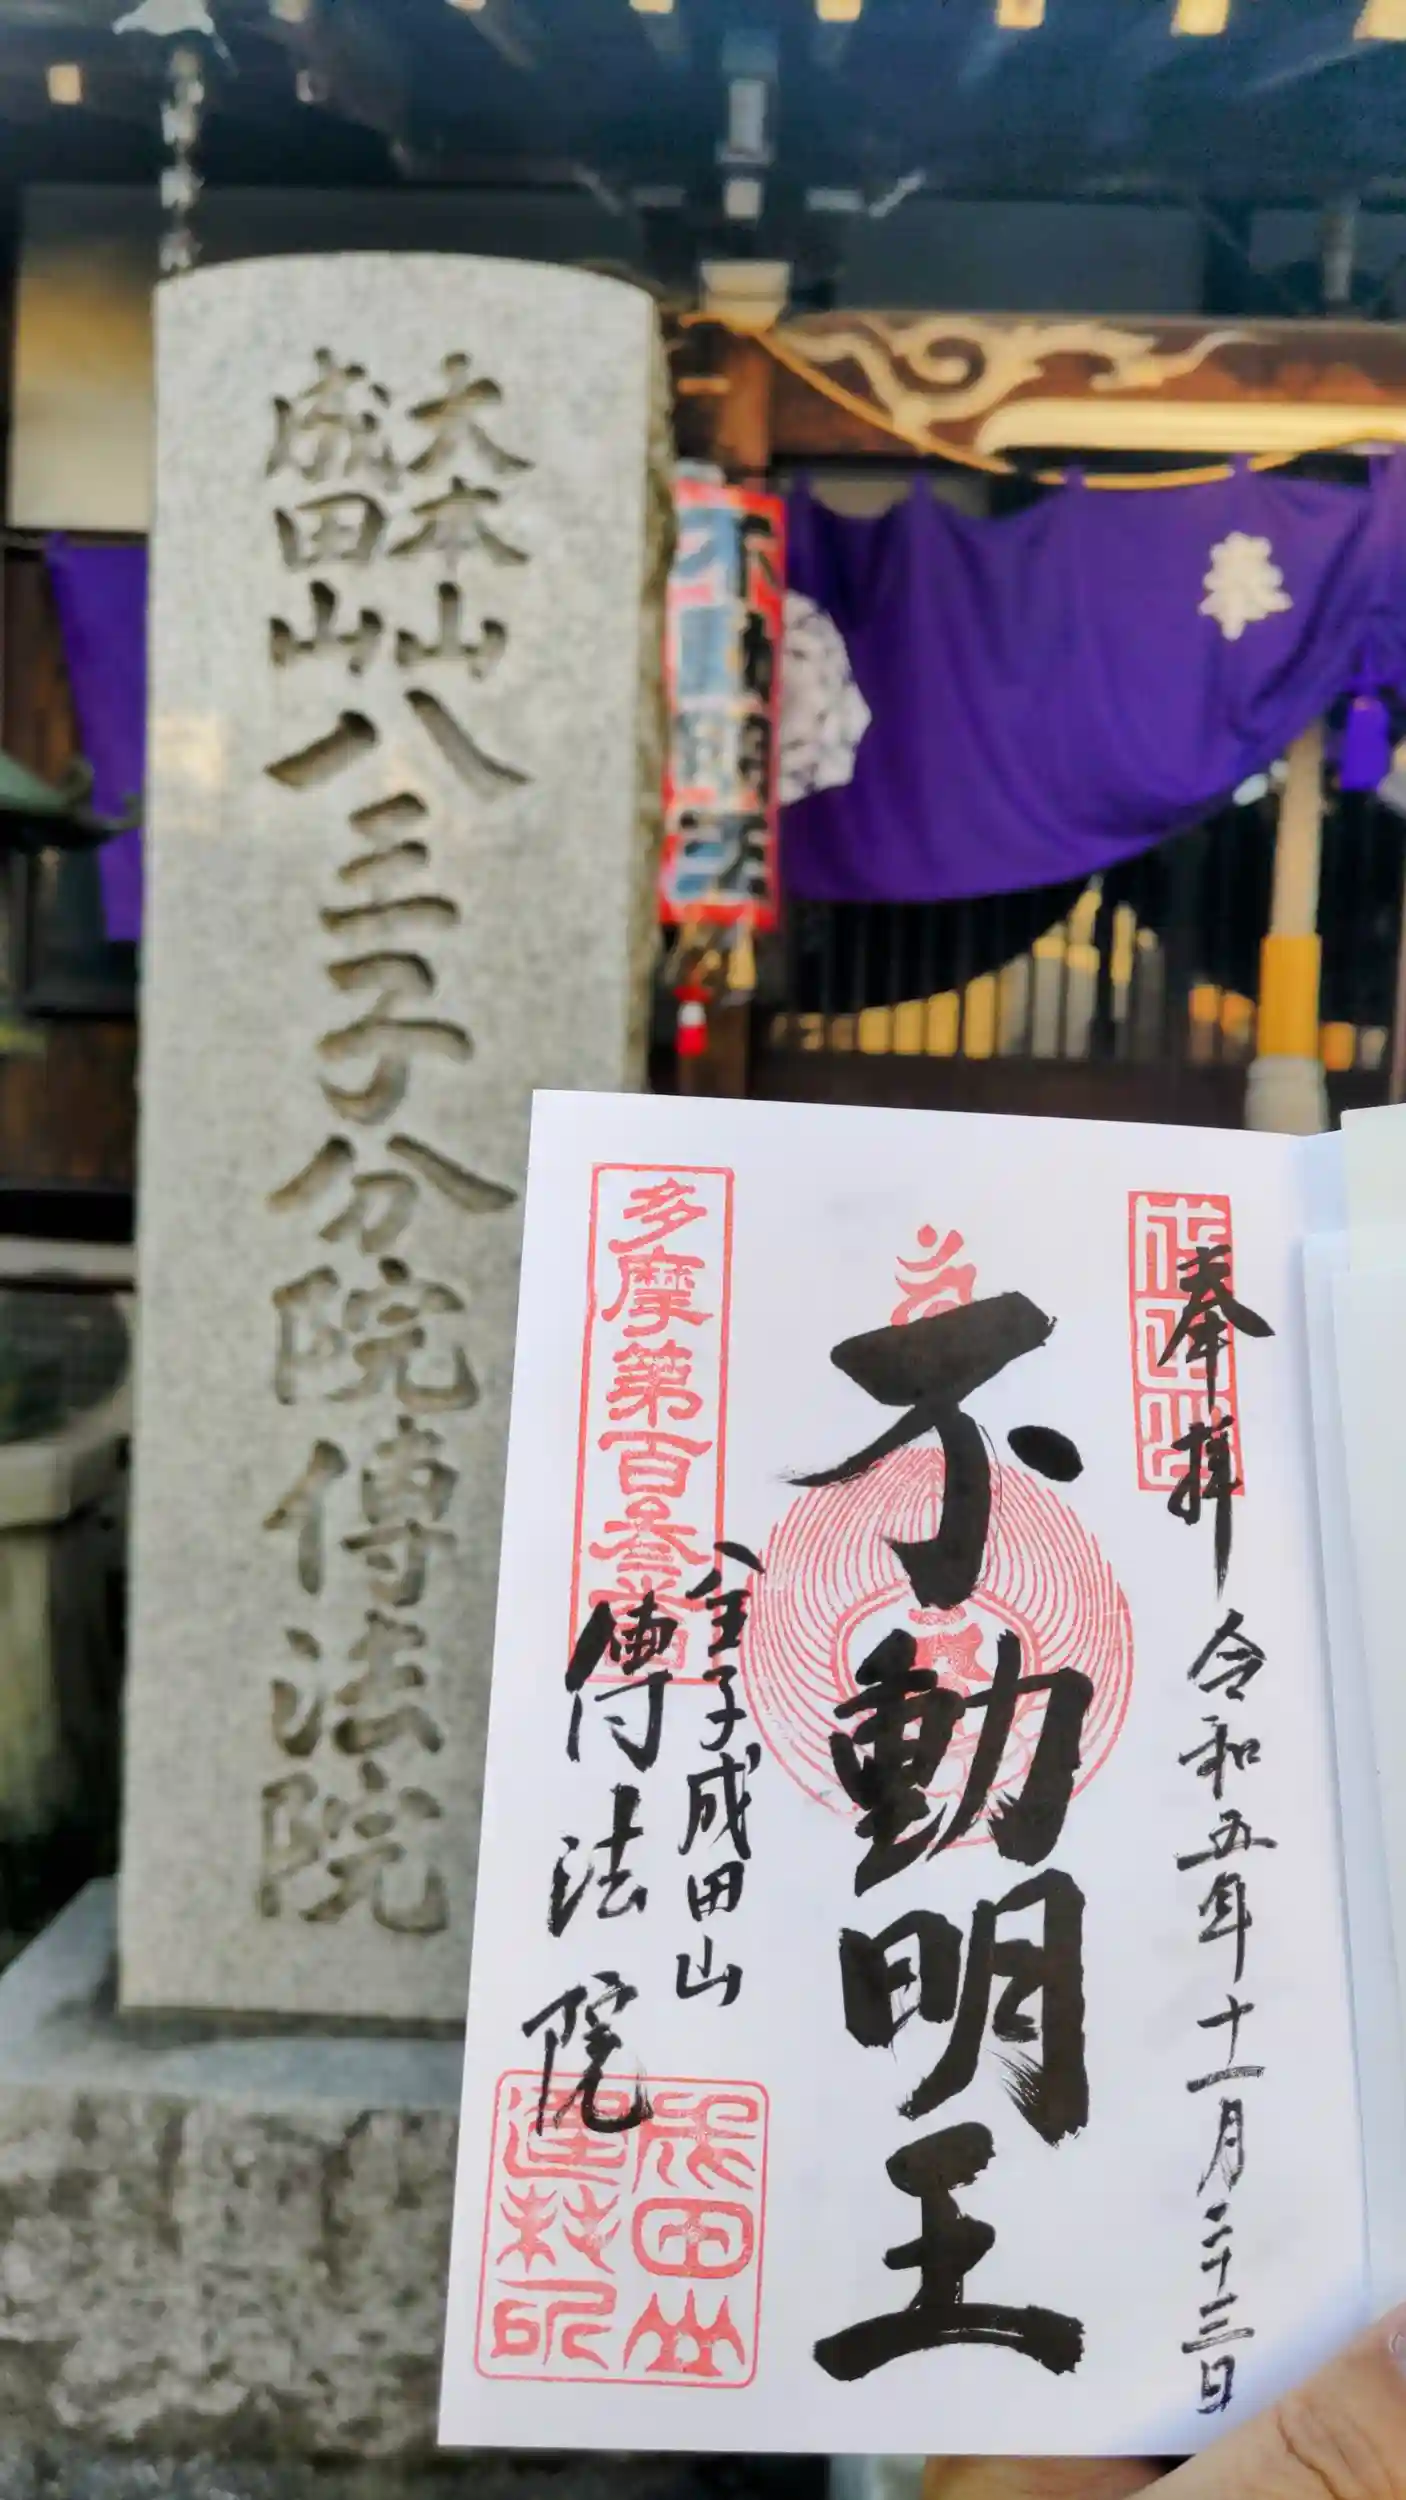 大本山
成田山
八王子分院傳法院
奉
奉拝
令和五年十一月二十三日
成田山
不動明王
八王子成田山
傳法院
多摩第百
成田山